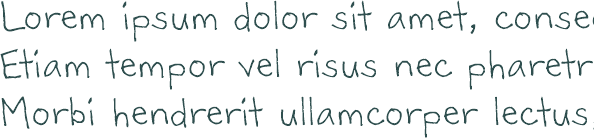 Lorem ipsum dolor sit amet, conse
Etiam tempor vel risus nec pharetr
Morbi hendrerit ullamcorper lectus,